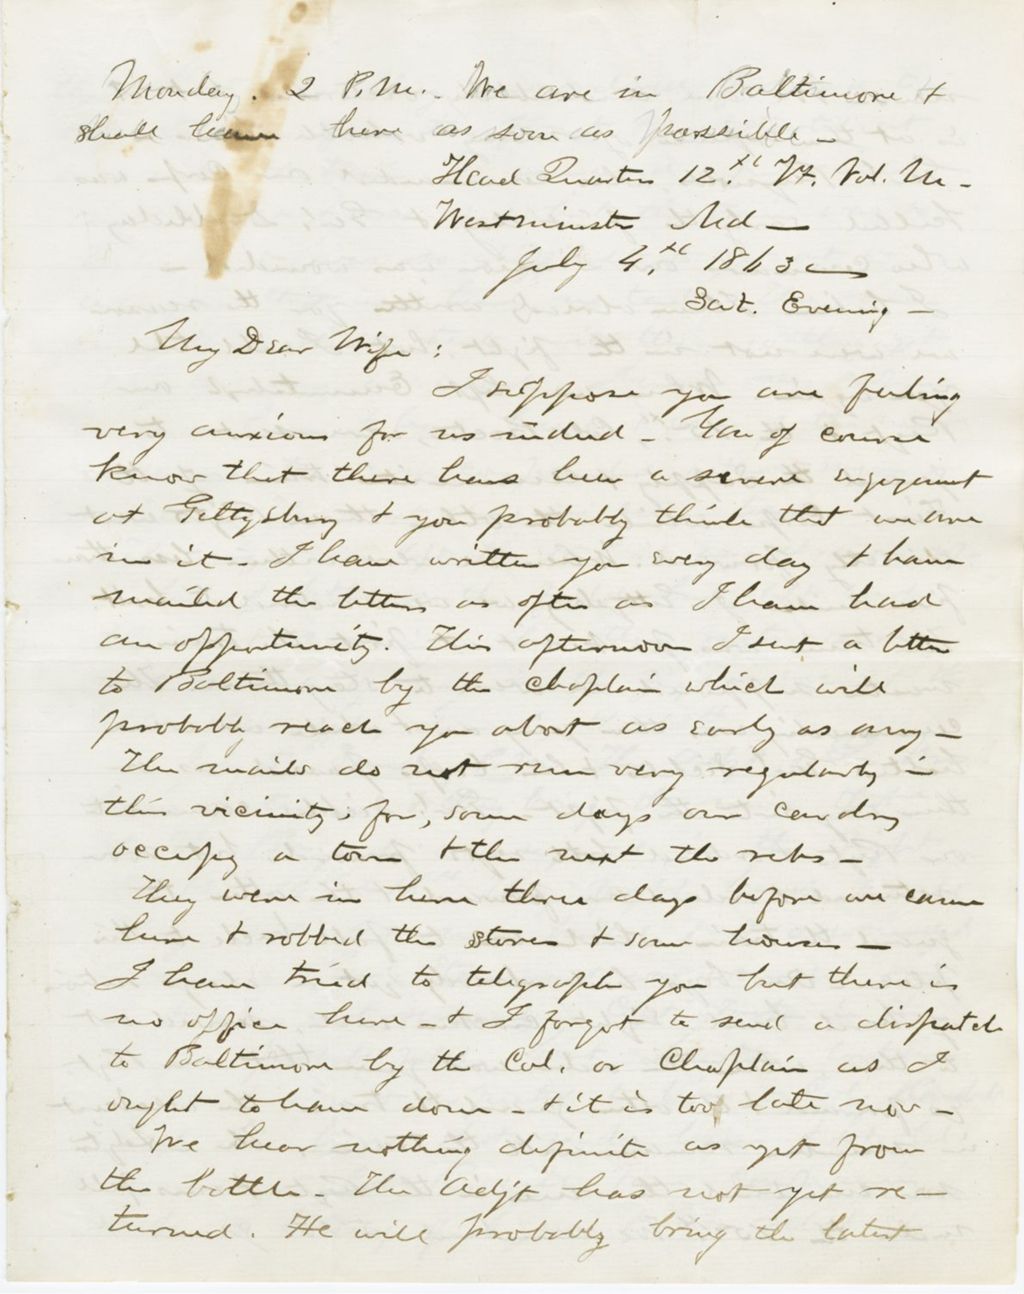 Monday. 2 P.M. - We are in Baltimore +
shall leave here as soon as possible -
Head Quarters 12.th Vt. Vol. M -
Westminster Md -
July 4.th 1863
Sat. Evening -
My Dear Wife :
I suppose you are feeling
very anxious for us indeed - You of course
know that there has been a severe engagement
at Gettysburg + you probably think that we are
in it - I have written you every day + have
mailed the letters as often as I have had
an opportunity. This afternoon I sent a letter
to Baltimore by the chaplain which will
probably reach you about as early as any -
The mails do not run very regularly in
this vicinity; for, some days our cavalry
occupy a town + the next the rebs -
They were in here three days before we came
here + robbed the stores + some houses -
I have tried to telegraph you but there is
no office here - + I forgot to send a dispatch
to Baltimore by the Col. or Chaplain as I
ought to have done - + it is too late now -
We hear nothing definite as yet from
the battle - The Adjt has not yet re-
turned. He will probably bring the latest